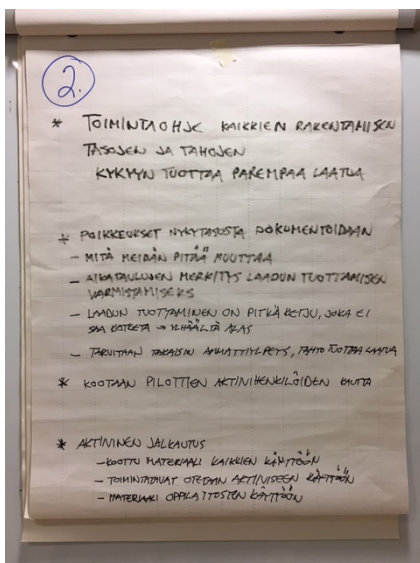 2.
* TOIMINTAOHJE KAIKKIEN RAKENTAMISEN
TASOJEN JA TAHOJEN
KYKYYN TUOTTAA PAREMPAA LAATUA
* POIKKEUKSET NYKYTASOSTA DOKUMENTOIDAAN
- MITÄ MEIDÄN PITÄÄ MUUTTAA
- AIKATAULUJEN MERKITYS LAADUN TUOTTAMISEN
VARMISTAMISEKS
- LAADUN TUOTTAMINEN ON PITKÄ KETJU, JOKA EI
SAA KATKETA → YLHÄÄLTÄ ALAS
- TARVITAAN TAKAISIN AMMATTIYLPEYS, TAHTO TUOTTAA LAATUA
* KOOTAAN PILOTTIEN AKTIIVIHENKILÖIDEN KAUTTA
* AKTIIVINEN JALKAUTUS
- KOOTTU MATERIAALI KAIKKIEN KÄYTTÖÖN
- TOIMINTATAVAT OTETAAN AKTIIVISEEN KÄYTTÖÖN
- MATERIAALI OPPILAITOSTEN KÄYTTÖÖN